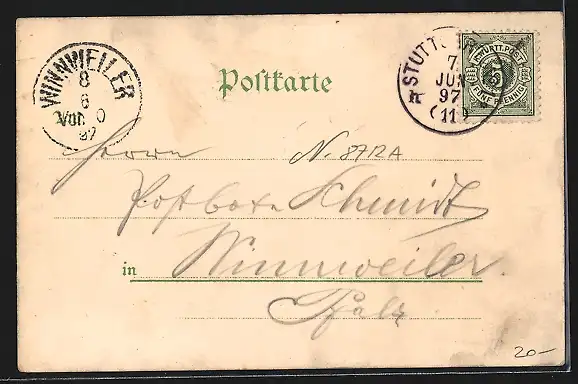 WINNWEILER
8
6
Vor. 0
97
Postkarte
STUTTG
7
JUN
97
11
K. WÜRTT. POST
5
FÜNF PFENNIG
Herrn N. 8712A
Postbote Schmidt
in Winnweiler.
Pfalz
20-